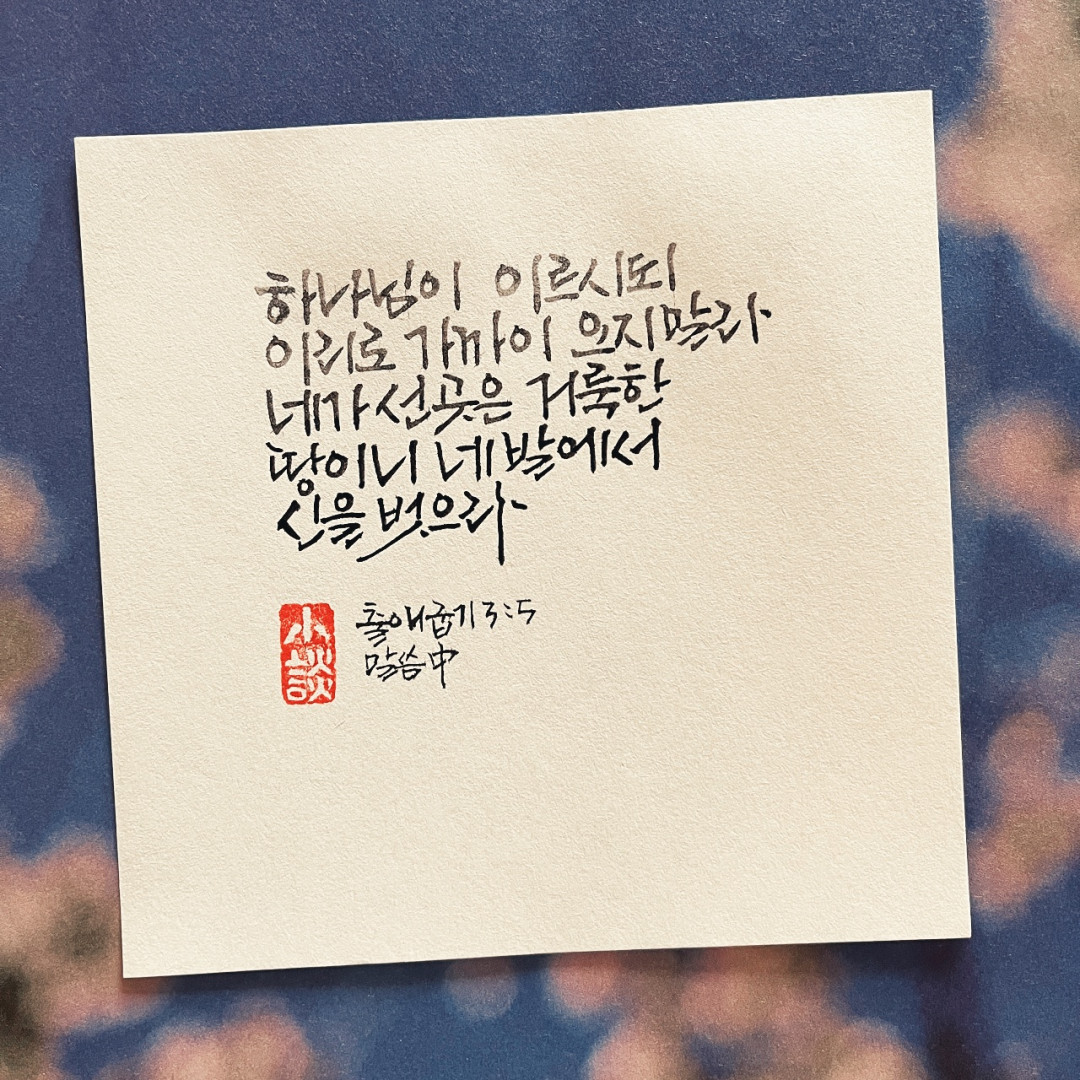 하나님이 이르시되
이리로 가까이 오지말라
네가 선 곳은 거룩한
땅이니 네 발에서
신을 벗으라
출애굽기 3:5
말씀中
小談